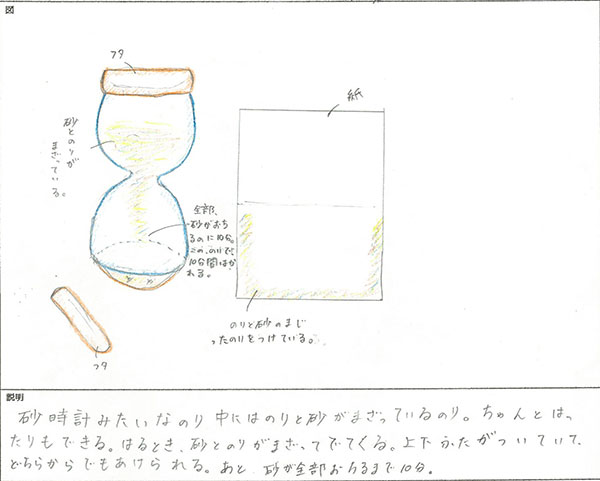 図
フタ
砂とのりが
まざっている。
紙
全部、
砂がおち
るのに10分。
このいで、
10分間はか
れる。
のりと砂のまじ
ったのりをつけている。
フタ
説明
砂時計みたいなのり中にはのりと砂がまざっているのり。ちゃんとはっ
たりもできる。はるとき、砂とのりがまざってでてくる。上下ふたがついていて、
どちらからでもあけられる。あと、砂が全部おちるまで10分。